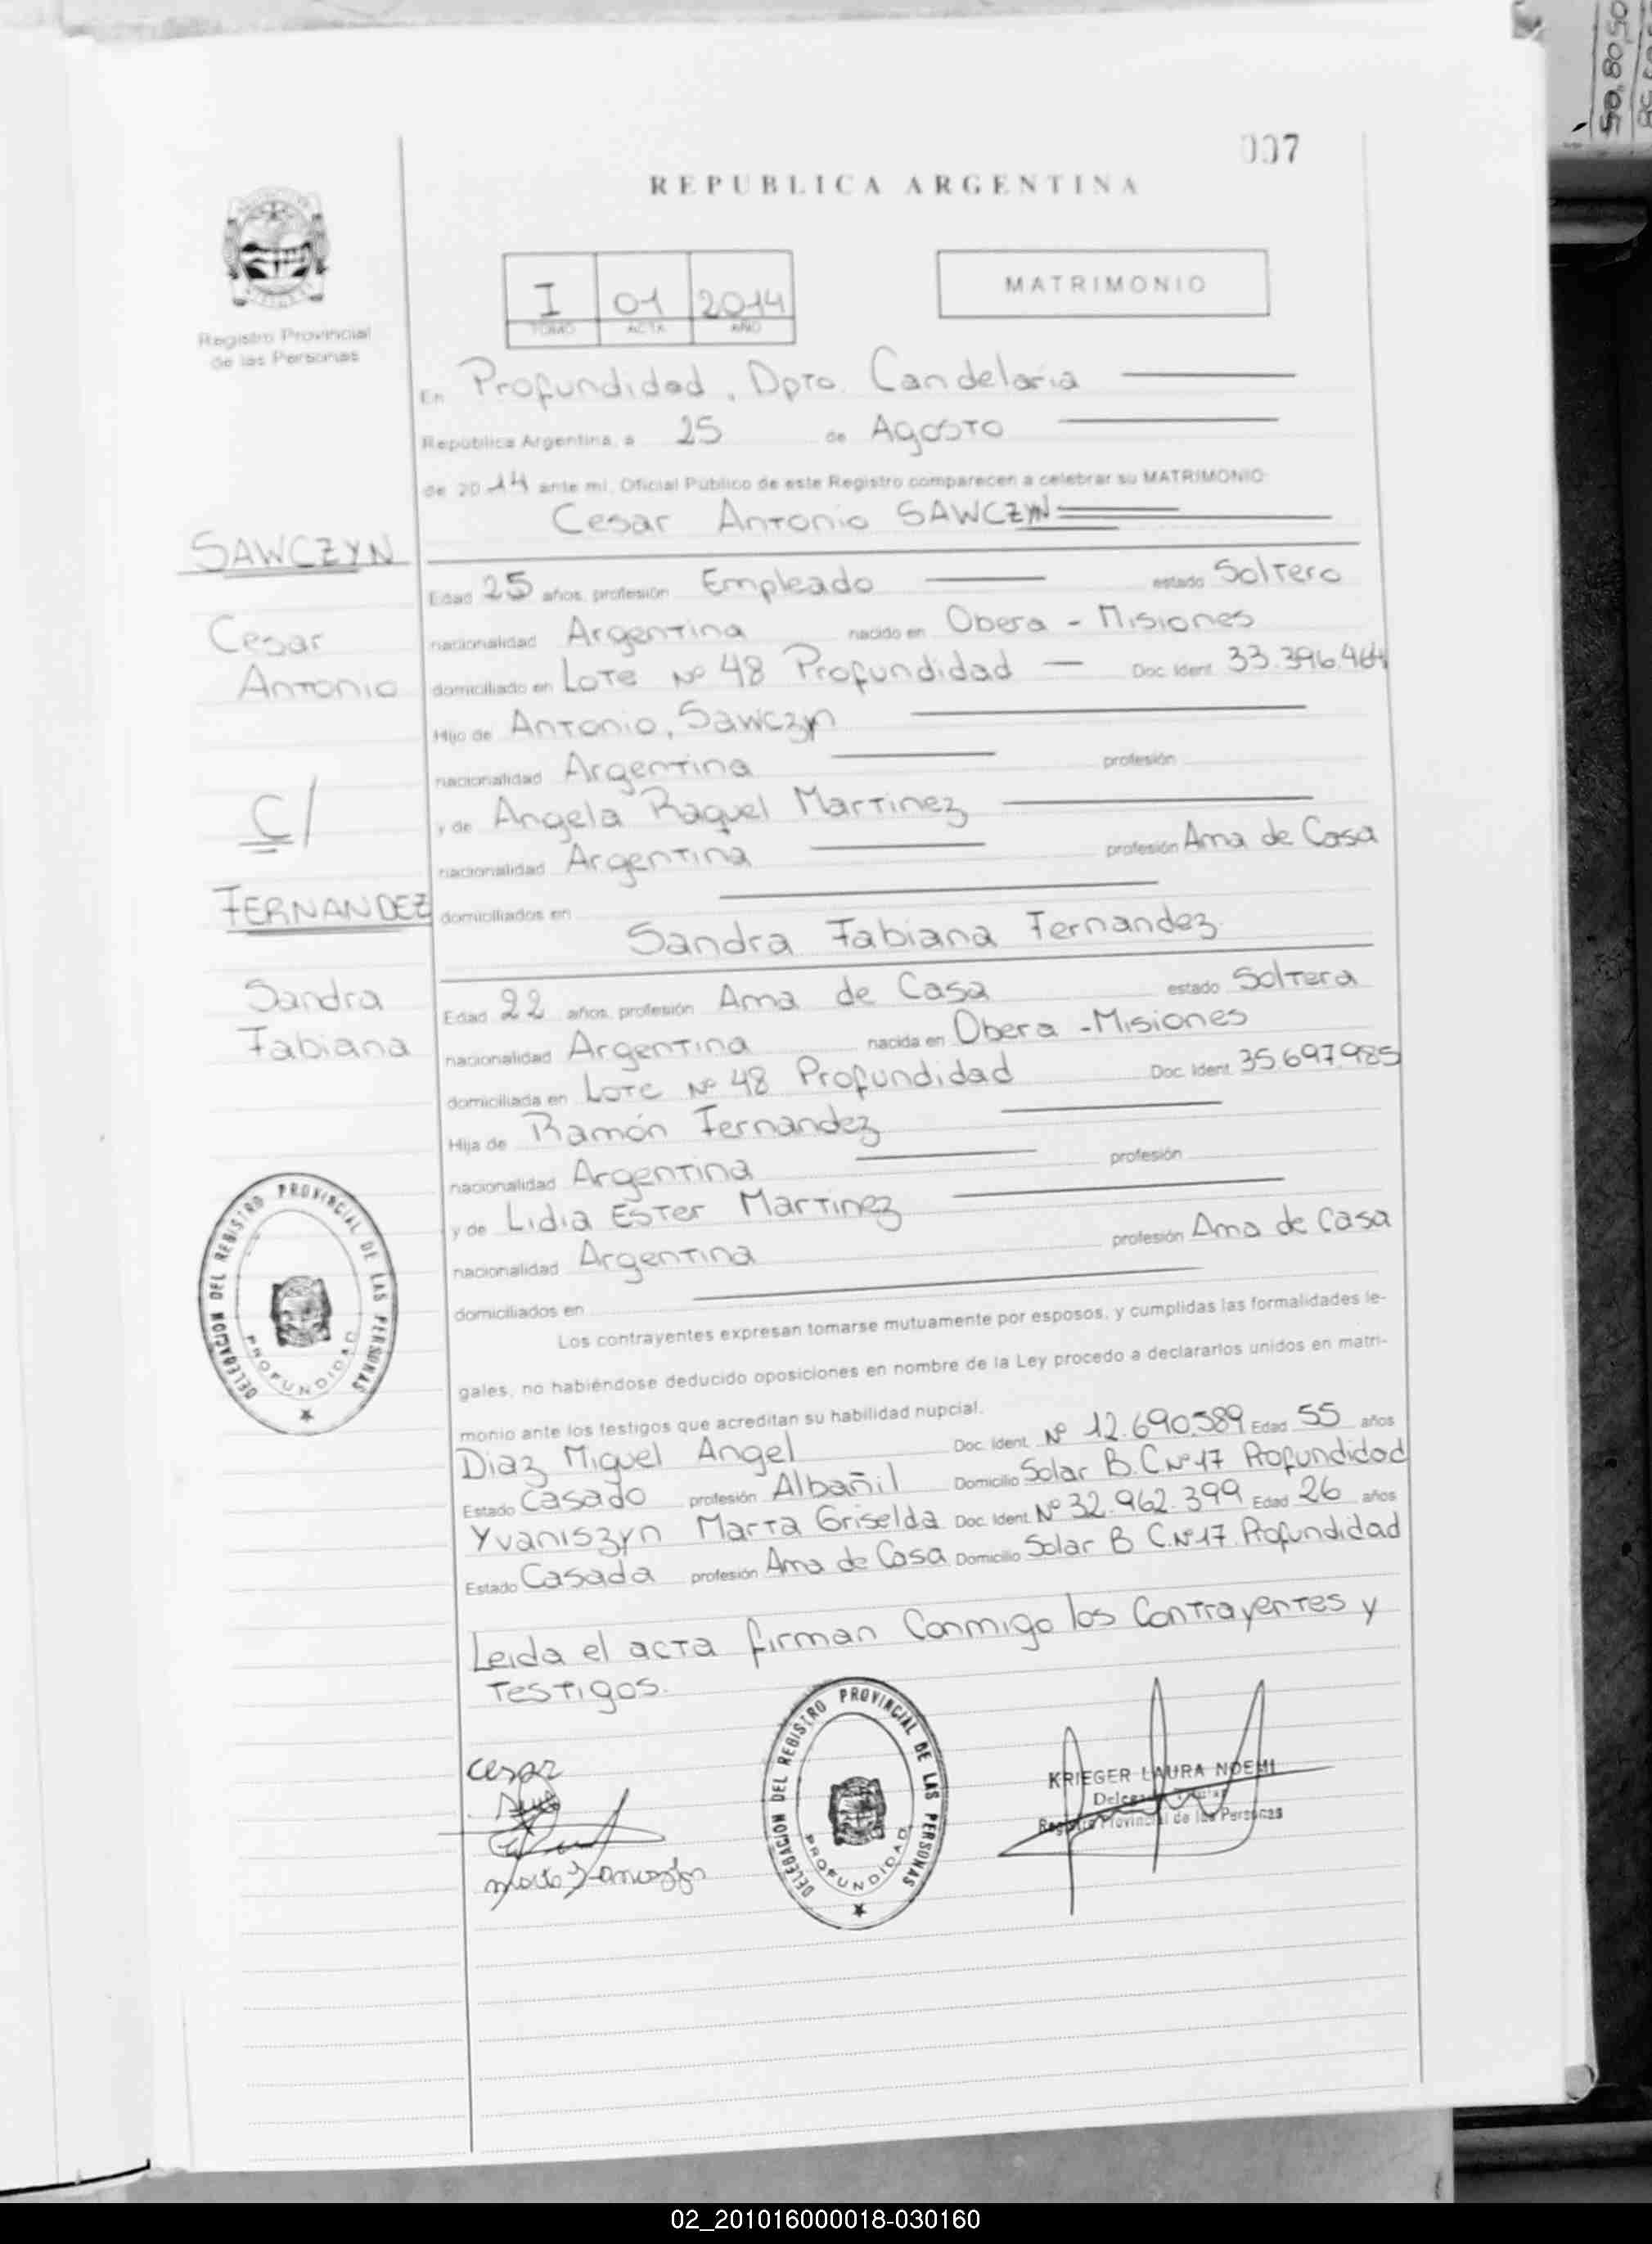 007
REPUBLICA ARGENTINA
Registro Provincial
de las Personas
I 01 2014
TOMO ACTA AÑO
MATRIMONIO
En Profundidad, Dpto. Candelaria
República Argentina, a 25 de Agosto
de 2014 ante mi, Oficial Público de este Registro comparecen a celebrar su MATRIMONIO
Cesar Antonio SAWCZYN
SAWCZYN
Edad 25 años, profesión Empleado estado Soltero
Cesar
nacionalidad Argentina nacido en Obera - Misiones
Antonio
domiciliado en Lote Nº 48 Profundidad Doc. Ident. 33.396.464
Hijo de Antonio, Sawczyn
nacionalidad Argentina profesión
C/
y de Angela Raquel Martinez
nacionalidad Argentina profesión Ama de Casa
FERNANDEZ
domiciliados en
Sandra Fabiana Fernandez
Sandra
Edad 22 años, profesión Ama de Casa estado Soltera
Fabiana
nacionalidad Argentina nacida en Obera - Misiones
domiciliada en Lote Nº 48 Profundidad Doc. Ident. 35.697.985
Hija de Ramón Fernandez
nacionalidad Argentina profesión
y de Lidia Ester Martinez
nacionalidad Argentina profesión Ama de Casa
domiciliados en
Los contrayentes expresan tomarse mutuamente por esposos, y cumplidas las formalidades le-
gales, no habiéndose deducido oposiciones en nombre de la Ley procedo a declararlos unidos en matri-
monio ante los testigos que acreditan su habilidad nupcial.
Diaz Miguel Angel Doc. Ident. Nº 12.690.589 Edad 55 años
Estado Casado profesión Albañil Domicilio Solar B. C.Nº17 Profundidad
Yvaniszyn Marta Griselda Doc. Ident. Nº 32.962.399 Edad 26 años
Estado Casada profesión Ama de Casa Domicilio Solar B C.Nº17. Profundidad
Leida el acta firman Conmigo los Contrayentes y
Testigos.
DELEGACION DEL REGISTRO PROVINCIAL DE LAS PERSONAS
PROFUNDIDAD
cesar
DELEGACION DEL REGISTRO PROVINCIAL DE LAS PERSONAS
PROFUNDIDAD
KRIEGER LAURA NOEMI
Registro Provincial de las Personas
02_201016000018-030160